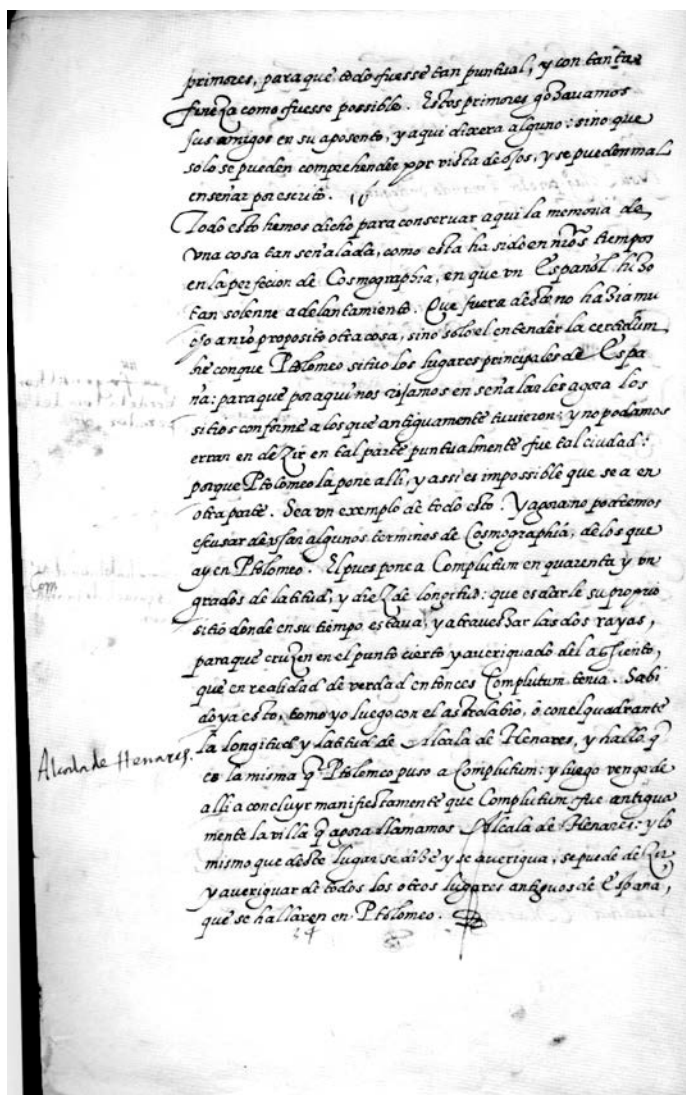 primores, para que todo fuesse tan puntual, y con tanta
fineza como fuesse possible. Estos primores gozauamos
sus amigos en su aposento, y aqui dixera alguno: sino que
solo se pueden comprehender por vista de ojos, y se pueden mal
enseñar por escrito.
Todo esto hemos dicho para conseruar aqui la memoria de
vna cosa tan señalada, como esta ha sido en nros tiempos
en la perfecion de Cosmographia, en que vn Español hizo
tan solenne adelantamiento. Que fuera desto no hazia mu
cho a nro proposito otra cosa, sino solo el entender la certidum
bre conque Ptolomeo sitiuo los lugares principales de Espa
ña: para que por aqui nos rijamos en señalarles agora los
sitios conforme a los que antiguamente tuuieron: y no podamos
errar en dezir en tal parte puntualmente fue tal ciudad:
porque Ptolomeo la pone alli, y assi es impossible que sea en
otra parte. Sea vn exemplo de todo esto. Y agora no podremos
escusar de vsar algunos terminos de Cosmographia, de los que
ay en Ptolomeo. El pues pone a Complutum en quarenta y vn
Com
grados de latitud, y diez de longitud: que es darle su proprio
sitio donde en su tiempo estaua, y atrauessar las dos rayas,
para que cruzen en el punto cierto y aueriguado del assiento,
que en realidad de verdad entonces Complutum tenia. Sabi
do ya esto, tomo yo luego con el astrolabio, ò con el quadrante
la longitud y latitud de Alcala de Henares, y hallo q̃
Alcala de Henares.
es la misma q̃ Ptolomeo puso a Complutum: y luego vengo de
alli a concluyr manifiestamente que Complutum fue antigua
mente la villa q̃ agora llamamos Alcala de Henares: y lo
mismo que deste lugar se dize y se auerigua, se puede dezir,
y aueriguar de todos los otros lugares antiguos de España,
que se hallaren en Ptolomeo.